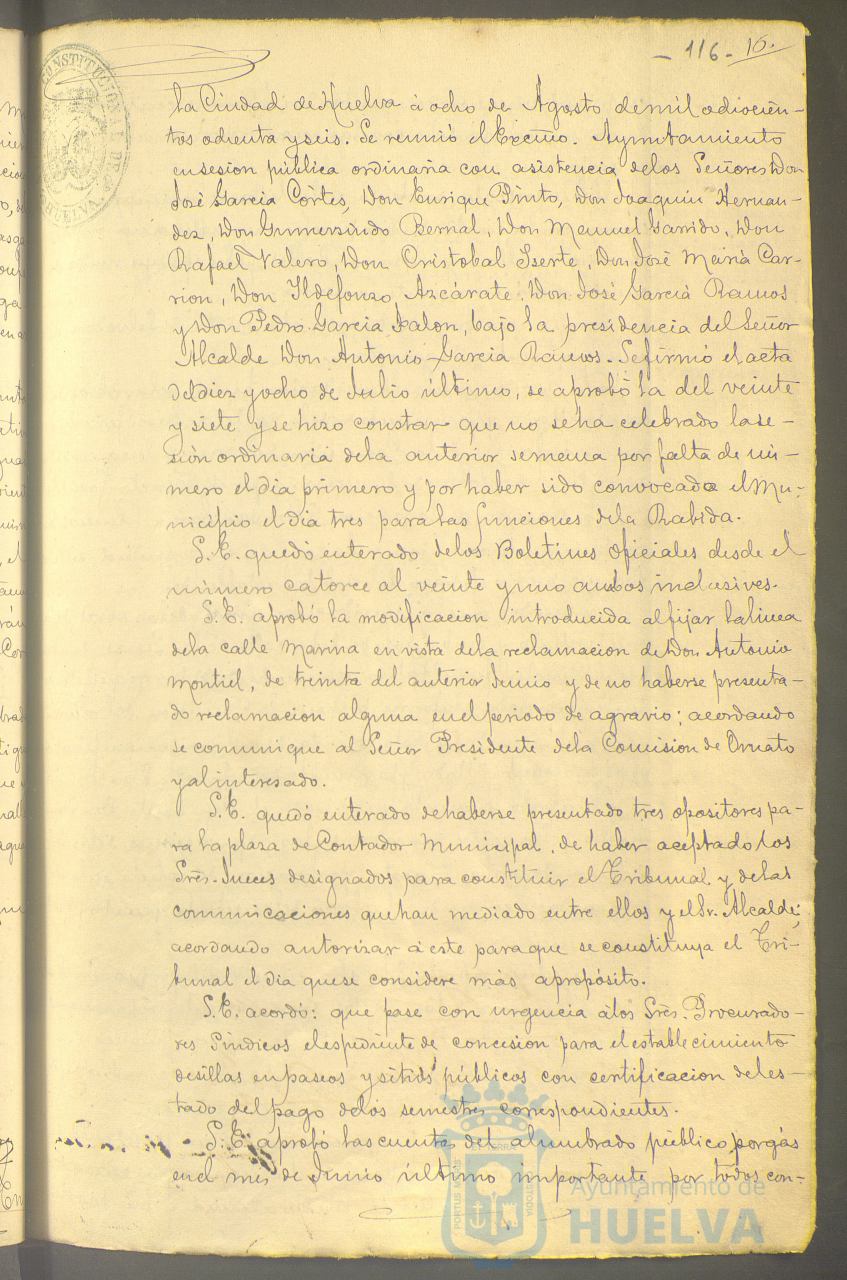 - 116 - 16.
CONSTITUCIONAL DE
HUELVA
la Ciudad de Huelva á ocho de Agosto de mil ochocien-
tos ochenta y seis. Se reunió el Excmo. Ayuntamiento
en sesion pública ordinaria con asistencia de los Señores Don
José Garcia Córtes, Don Enrique Pinto, Don Joaquin Hernan-
dez, Don Gumersindo Bernal, Don Manuel Garrido, Don
Rafael Valero, Don Cristobal Iserte, Don José Maria Car-
rion, Don Ildefonzo Azcárate, Don José Garcia Ramos
y Don Pedro Garcia Jalon, bajo la presidencia del Señor
Alcalde Don Antonio Garcia Ramos. Se firmó el acta
del diez y ocho de Julio último, se aprobó la del veinte
y siete y se hizo constar que no se ha celebrado la se-
sion ordinaria de la anterior semana por falta de nú-
mero el dia primero y por haber sido convocado el Mu-
nicipio el dia tres para las funciones de la Rabida.
S. E. quedó enterado de los Boletines oficiales desde el
número catorce al veinte y uno ambos inclusives.
S. E. aprobó la modificacion introducida al fijar la linea
de la calle Marina en vista de la reclamacion de Don Antonio
Montiel, de treinta del anterior Junio y de no haberse presenta-
do reclamacion alguna en el periodo de agravio; acordando
se comunique al Señor Presidente de la Comision de Ornato
y al interesado.
S. E. quedó enterado de haberse presentado tres opositores pa-
ra la plaza de Contador Municipal, de haber aceptado los
Sres. Jueces designados para constituir el Tribunal y de las
comunicaciones que han mediado entre ellos y el Sr. Alcalde;
acordando autorizar á este para que se constituya el Tri-
bunal el dia que se considere más apropósito.
S. E. acordó: que pase con urgencia á los Sres. Procurado-
res Síndicos el espediente de concesion para el establecimiento
de sillas en paseos y sitios públicos con certificacion del es-
tado del pago de los semestres correspondientes.
S. E. aprobó las cuentas del alumbrado público por gás
en el mes de Junio último importante por todos con-
PORTUS MARIS
ET TERRAE
CUSTODIA
Ayuntamiento de
HUELVA